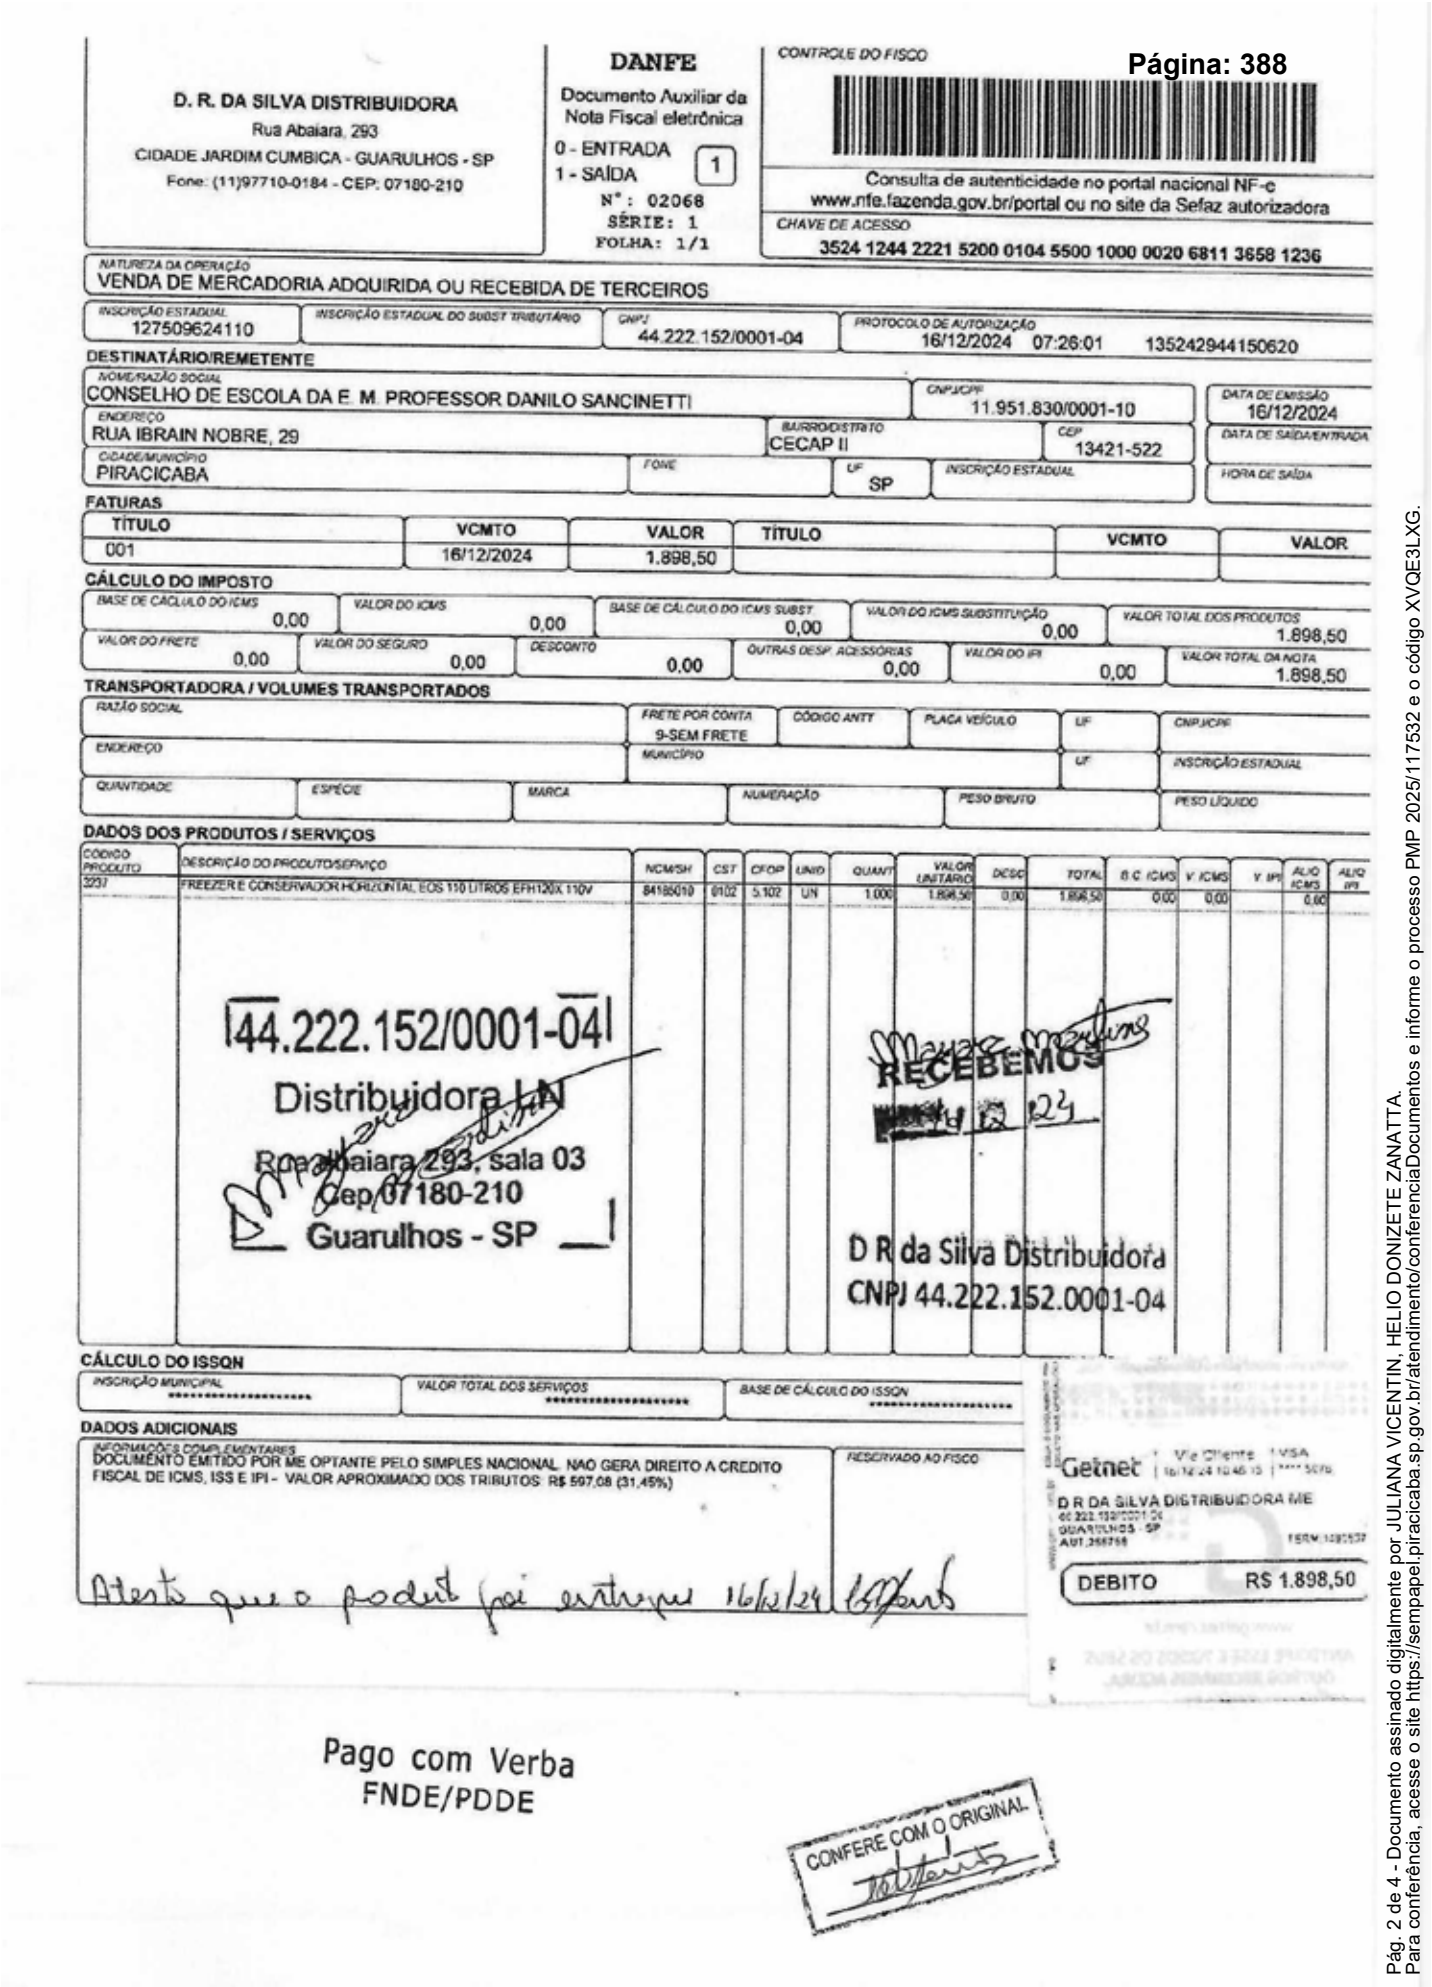 Página: 388
D. R. DA SILVA DISTRIBUIDORA
Rua Abaiara, 293
CIDADE JARDIM CUMBICA - GUARULHOS - SP
Fone: (11)97710-0184 - CEP: 07180-210
DANFE
Documento Auxiliar da
Nota Fiscal eletrônica
0 - ENTRADA
1 - SAÍDA
1
N°: 02068
SÉRIE: 1
FOLHA: 1/1
CONTROLE DO FISCO
Consulta de autenticidade no portal nacional NF-e
www.nfe.fazenda.gov.br/portal ou no site da Sefaz autorizadora
CHAVE DE ACESSO
3524 1244 2221 5200 0104 5500 1000 0020 6811 3658 1236
NATUREZA DA OPERAÇÃO
VENDA DE MERCADORIA ADQUIRIDA OU RECEBIDA DE TERCEIROS
INSCRIÇÃO ESTADUAL INSCRIÇÃO ESTADUAL DO SUBST TRIBUTÁRIO CNPJ PROTOCOLO DE AUTORIZAÇÃO
127509624110 44.222.152/0001-04 16/12/2024 07:26:01 135242944150620
DESTINATÁRIO/REMETENTE
NOME/RAZÃO SOCIAL CNPJ/CPF DATA DE EMISSÃO
CONSELHO DE ESCOLA DA E. M. PROFESSOR DANILO SANCINETTI 11.951.830/0001-10 16/12/2024
ENDEREÇO BAIRRO/DISTRITO CEP DATA DE SAÍDA/ENTRADA
RUA IBRAIN NOBRE, 29 CECAP II 13421-522
CIDADE/MUNICÍPIO FONE UF INSCRIÇÃO ESTADUAL HORA DE SAÍDA
PIRACICABA SP
FATURAS
TÍTULO VCMTO VALOR TÍTULO VCMTO VALOR
001 16/12/2024 1.898,50
CÁLCULO DO IMPOSTO
BASE DE CÁCLULO DO ICMS VALOR DO ICMS BASE DE CÁLCULO DO ICMS SUBST. VALOR DO ICMS SUBSTITUIÇÃO VALOR TOTAL DOS PRODUTOS
0,00 0,00 0,00 0,00 1.898,50
VALOR DO FRETE VALOR DO SEGURO DESCONTO OUTRAS DESP. ACESSÓRIAS VALOR DO IPI VALOR TOTAL DA NOTA
0,00 0,00 0,00 0,00 0,00 1.898,50
TRANSPORTADORA / VOLUMES TRANSPORTADOS
RAZÃO SOCIAL FRETE POR CONTA CÓDIGO ANTT PLACA VEÍCULO UF CNPJ/CPF
9-SEM FRETE
ENDEREÇO MUNICÍPIO UF INSCRIÇÃO ESTADUAL
QUANTIDADE ESPÉCIE MARCA NUMERAÇÃO PESO BRUTO PESO LÍQUIDO
DADOS DOS PRODUTOS / SERVIÇOS
CÓDIGO PRODUTO DESCRIÇÃO DO PRODUTO/SERVIÇO NCM/SH CST CFOP UNID QUANT VALOR UNITÁRIO DESC TOTAL B.C. ICMS V. ICMS V. IPI ALIQ ICMS ALIQ IPI
3237 FREEZER E CONSERVADOR HORIZONTAL EOS 110 LITROS EFH120X 110V 84185010 0102 5.102 UN 1.000 1.898,50 0,00 1.898,50 0,00 0,00 0,00
44.222.152/0001-04
Distribuidora LN
Rua abaiara 293, sala 03
Cep 07180-210
Guarulhos - SP
Mayara Martins
RECEBEMOS
12 24
D R da Silva Distribuidora
CNPJ 44.222.152.0001-04
CÁLCULO DO ISSQN
INSCRIÇÃO MUNICIPAL VALOR TOTAL DOS SERVIÇOS BASE DE CÁLCULO DO ISSQN
DADOS ADICIONAIS
INFORMAÇÕES COMPLEMENTARES RESERVADO AO FISCO
DOCUMENTO EMITIDO POR ME OPTANTE PELO SIMPLES NACIONAL. NAO GERA DIREITO A CREDITO
FISCAL DE ICMS, ISS E IPI - VALOR APROXIMADO DOS TRIBUTOS: R$ 597,08 (31,45%)
Atesto que o produto foi entregue 16/12/24
Getnet Via Cliente VISA
16/12/24 10:46:15
D R DA SILVA DISTRIBUIDORA ME
GUARULHOS - SP
DEBITO R$ 1.898,50
Pago com Verba
FNDE/PDDE
CONFERE COM O ORIGINAL
Pág. 2 de 4 - Documento assinado digitalmente por JULIANA VICENTIN, HELIO DONIZETE ZANATTA.
Para conferência, acesse o site https://sempapel.piracicaba.sp.gov.br/atendimento/conferenciaDocumentos e informe o processo PMP 2025/117532 e o código XVQE3LXG.